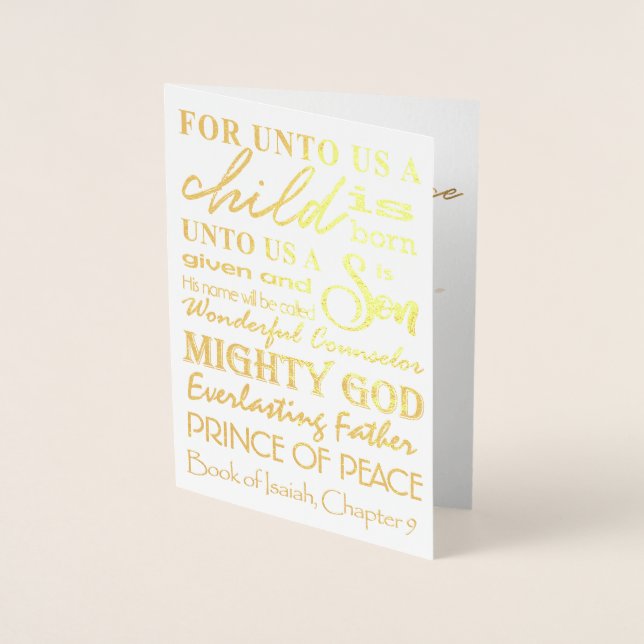 FOR UNTO US A
child is
born
UNTO US A
Son is
given and
His name will be called
Wonderful Counselor
MIGHTY GOD
Everlasting Father
PRINCE OF PEACE
Book of Isaiah, Chapter 9